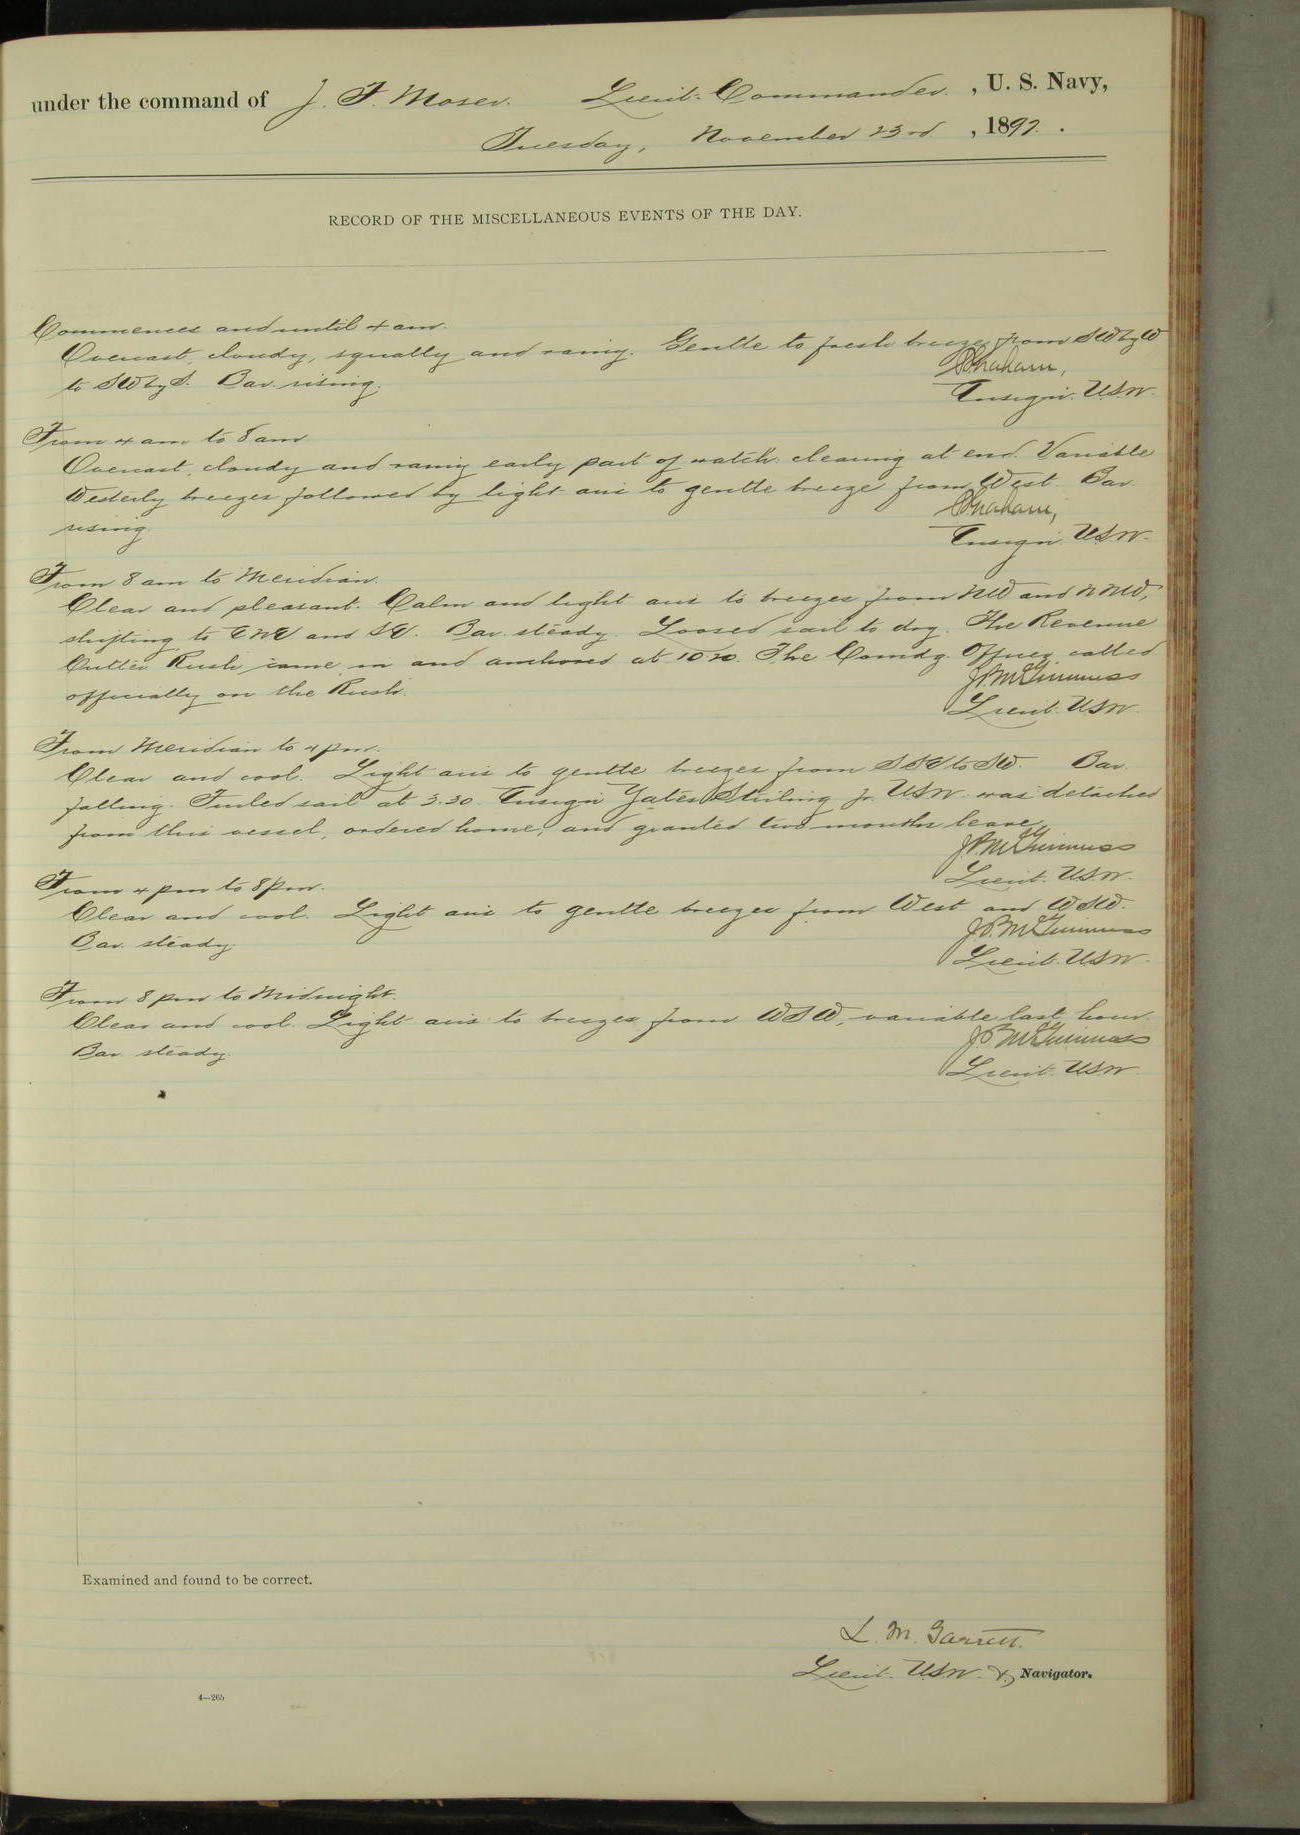 under the command of J. F. Moser. Lieut. Commander. , U. S. Navy,
Tuesday, November 23rd , 1897 .
RECORD OF THE MISCELLANEOUS EVENTS OF THE DAY.
Commences and until 4 am.
Overcast, cloudy, squally and rainy. Gentle to fresh breeze from SWbyW
to SWbyS. Bar. rising.
Graham,
Ensign. U.S.N.
From 4 am to 8 am.
Overcast, cloudy and rainy early part of watch: clearing at end. Variable
Westerly breezes followed by light airs to gentle breeze from West. Bar.
rising.
Graham,
Ensign U.S.N.
From 8 am to Meridian.
Clear and pleasant. Calm and light airs to breezes from NW and NNW,
shifting to ENE and SE. Bar. steady. Loosed sail to dry. The Revenue
Cutter Rush came in and anchored at 10.20. The Comdg. Officer called
officially on the Rush.
J.P. McGuinness
Lieut. U.S.N.
From Meridian to 4 pm.
Clear and cool. Light airs to gentle breezes from SSE to SW. Bar.
falling. Furled sail at 3.30. Ensign Yates Stirling jr. U.S.N. was detached
from this vessel, ordered home, and granted two months leave.
J.P. McGuinness
Lieut. U.S.N.
From 4 pm to 8 pm.
Clear and cool. Light airs to gentle breezes from West and WSW.
Bar. steady.
J.P. McGuinness
Lieut. U.S.N.
From 8 pm to Midnight.
Clear and cool. Light airs to breezes from WSW, variable last hour.
Bar steady.
J.P. McGuinness
Lieut. U.S.N.
Examined and found to be correct.
L. M. Garrett.
Lieut. U.S.N. &, Navigator.
4—265